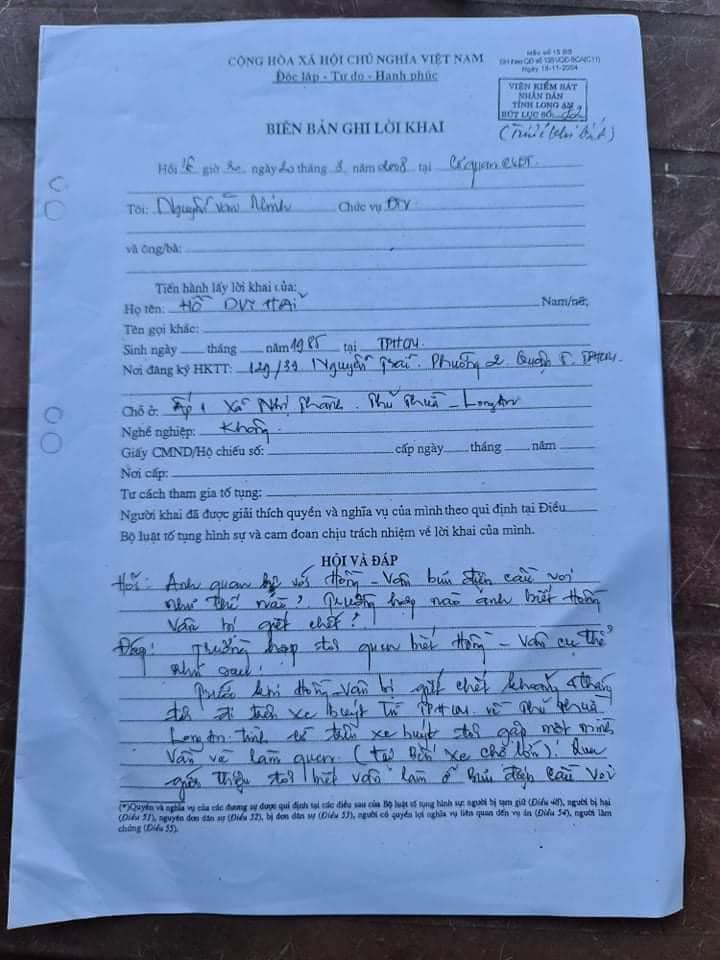 CỘNG HÒA XÃ HỘI CHỦ NGHĨA VIỆT NAM
Độc lập - Tự do - Hạnh phúc
Mẫu số 15 BB
BH theo QĐ số 1351/QĐ-BCA(C11)
Ngày 18-11-2004
VIỆN KIỂM SÁT
NHÂN DÂN
TỈNH LONG AN
BÚT LỤC SỐ:
BIÊN BẢN GHI LỜI KHAI
Hồi giờ ngày 20 tháng 3 năm 2008 tại Cơ quan CSĐT
Tôi: Nguyễn Văn Minh Chức vụ ĐTV
và ông/bà:
Tiến hành lấy lời khai của:
Họ tên: HỒ DUY HẢI Nam/nữ;
Tên gọi khác:
Sinh ngày tháng năm 1985 tại TPHCM
Nơi đăng ký HKTT: 129/39 Nguyễn Trãi. Phường 2 Quận 5. TPHCM.
Chỗ ở: Ấp 1 Xã Nhị Thành. Thủ Thừa - Long An
Nghề nghiệp: Không
Giấy CMND/Hộ chiếu số: cấp ngày tháng năm
Nơi cấp:
Tư cách tham gia tố tụng:
Người khai đã được giải thích quyền và nghĩa vụ của mình theo qui định tại Điều
Bộ luật tố tụng hình sự và cam đoan chịu trách nhiệm về lời khai của mình.
HỎI VÀ ĐÁP
Hỏi: Anh quan hệ với Hồng - Vân bưu điện cầu voi
như thế nào? Trường hợp nào anh biết Hồng
Vân bị giết chết?
Đáp: Trường hợp tôi quen biết Hồng - Vân cụ thể
như sau:
Trước khi Hồng - Vân bị giết chết khoảng tháng
tôi đi trên xe buýt từ TPHCM về Thủ Thừa
Long An. Tình cờ trên xe buýt tôi gặp một mình
Vân và làm quen. (tại bến xe chợ lớn). Qua
giới thiệu tôi biết Vân làm ở Bưu điện Cầu Voi
(*)Quyền và nghĩa vụ của các đương sự được qui định tại các điều sau của Bộ luật tố tụng hình sự: người bị tạm giữ (Điều 48), người bị hại
(Điều 51), nguyên đơn dân sự (Điều 52), bị đơn dân sự (Điều 53), người có quyền lợi nghĩa vụ liên quan đến vụ án (Điều 54), người làm
chứng (Điều 55).